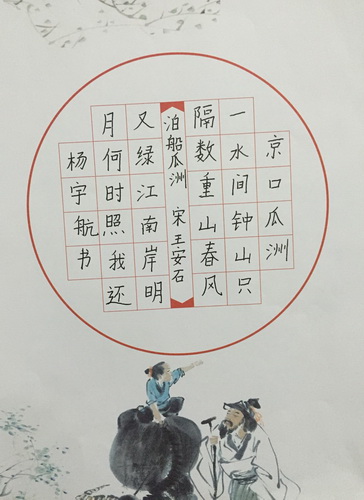 京口瓜洲
一水间钟山只
隔数重山春风
泊船瓜洲 宋 王安石
又绿江南岸明
月何时照我还
杨宇航书